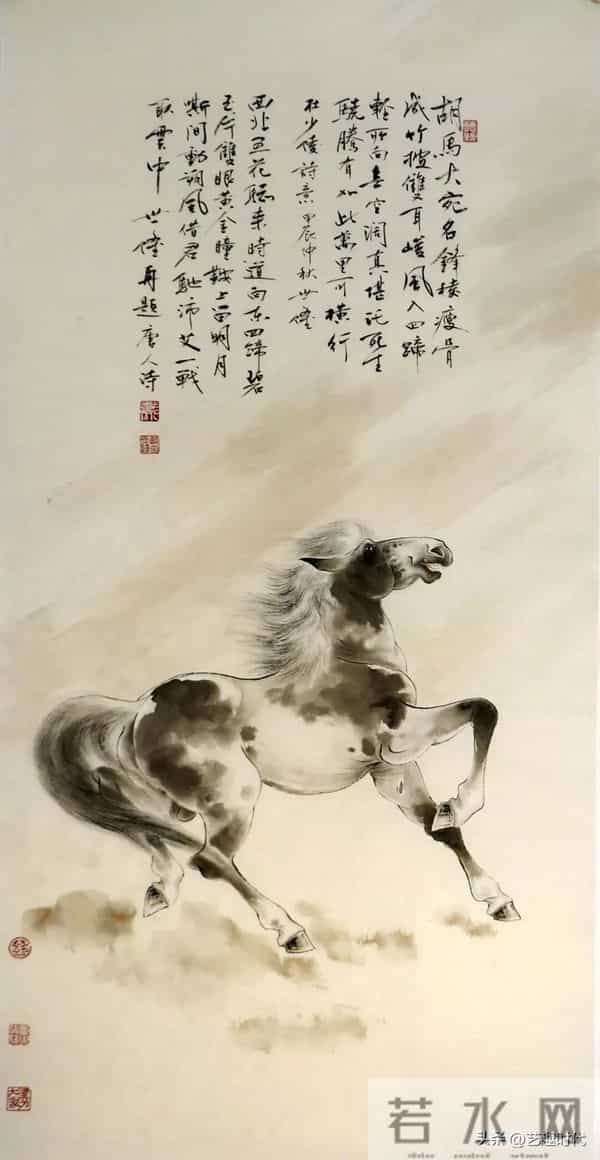 胡馬大宛名鋒棱瘦骨
成竹披雙耳峻風入四蹄
輕所向無空闊真堪託死生
驍騰有如此萬里可橫行
杜少陵詩意甲辰仲秋世
西北五花驄来時道向东四蹄碧
玉片雙眼黄金瞳鞍上留明月
嘶间動朔風借君馳沛艾一戰
取雲中 世 再題唐人诗
若水网
头条 @艺趣时代